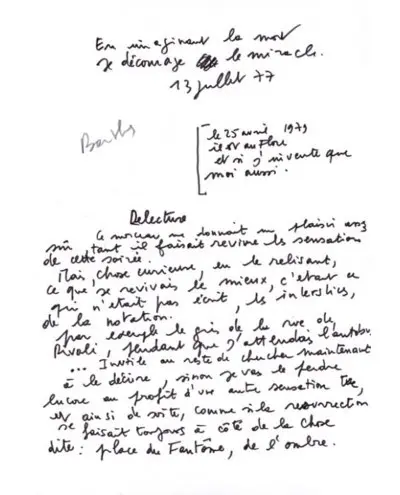 En imaginant la mort
je décourage le miracle.
13 juillet 77
Barthes
le 25 avril 1979
il est au Flore
et si j'invente que
moi aussi.
Délecture
Ce morceau me donnait un plaisir assez
sûr, tant il faisait revivre les sensations
de cette soirée.
Mais, chose curieuse, en le relisant,
ce que je revivais le mieux, c'était ce
qui n'était pas écrit, les interstices,
de la notation.
par exemple le gris de la rue de
Rivoli, pendant que j'attendais l'autobus.
... Inutile au reste de chercher maintenant
à le décrire, sinon je vais le perdre
encore au profit d'une autre sensation
et ainsi de suite, comme si la resurrection
se faisait toujours à côté de la chose
dite : place du Fantôme, de l'ombre.